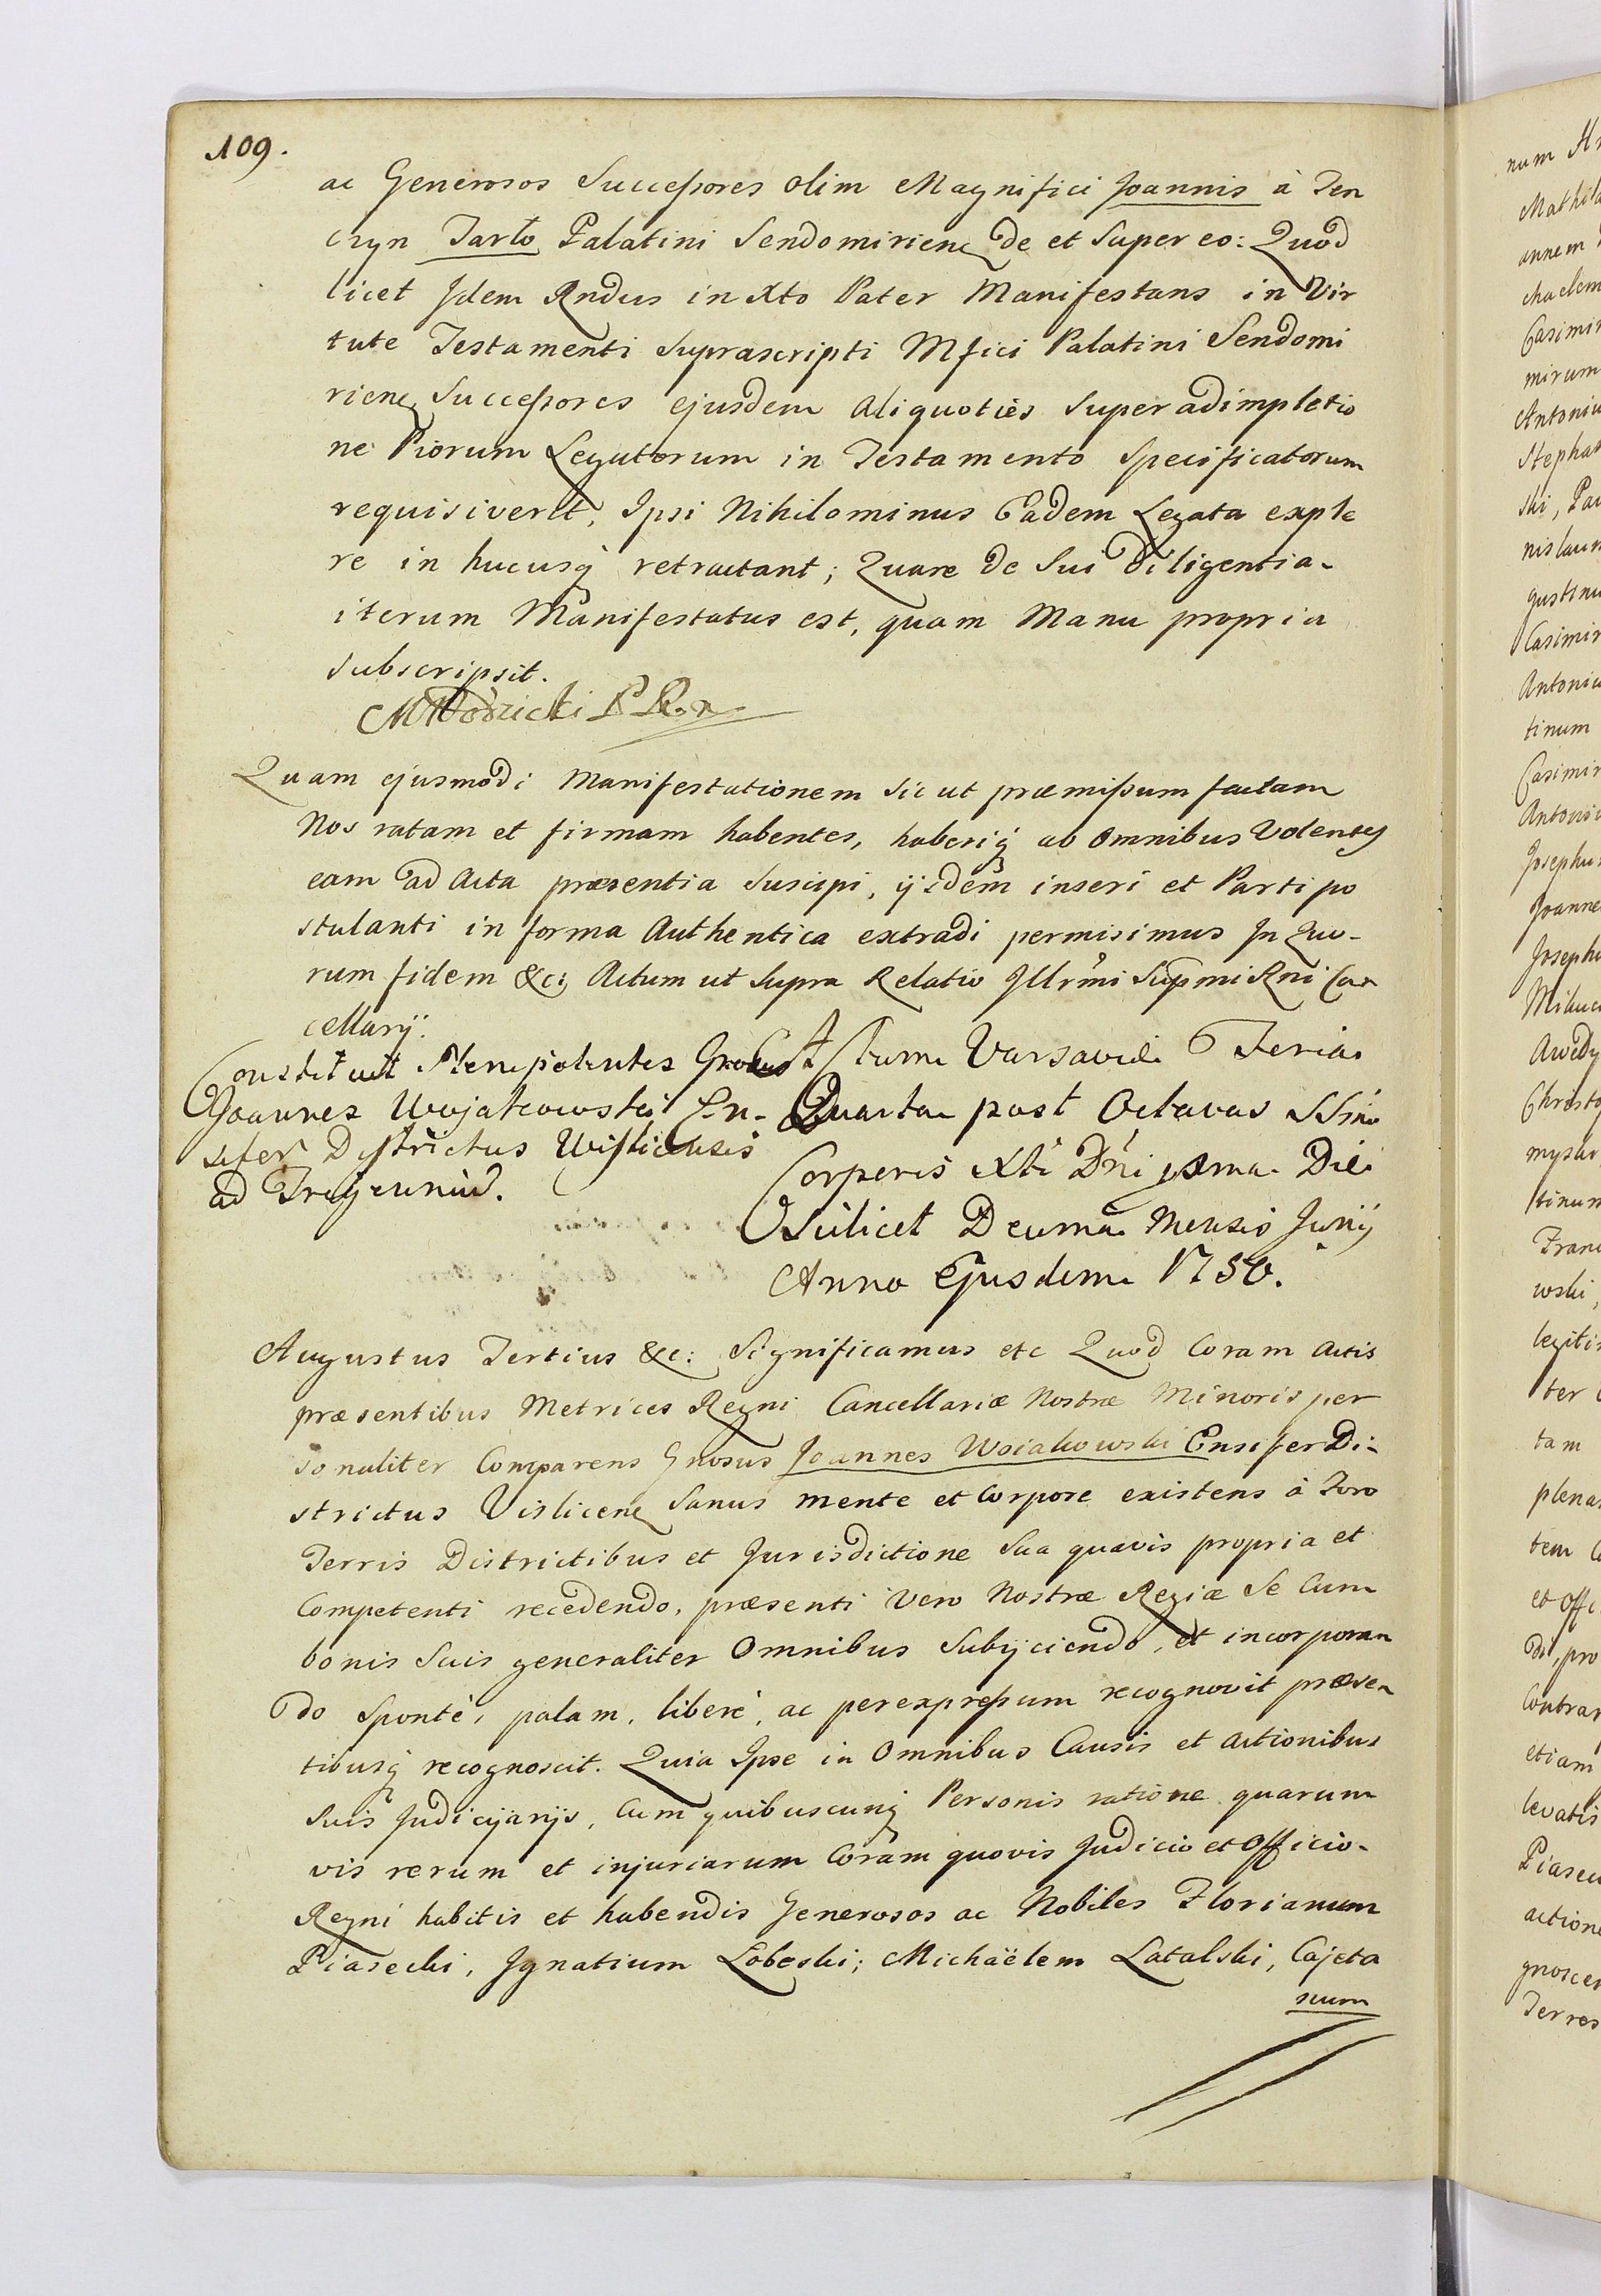 109.
ac Generosos Successores olim Magnifici Joannis à Ten
czyn Tarło Palatini Sendomirienę de et super eo: Quod
licet Idem Rndus in Xto Pater Manifestans in Vir
tute Testamenti suprascripti Mfici Palatini Sendomi
rienę Successores ejusdem aliquoties super adimpletio
ne Piorum Legatorum in Testamento specificatorum
requisiverit, Ipsi Nihilominus Eadem Legata exple
re in hucusq retractant; Quare de Sui diligentia
iterum Manifestatus est, quam Manu propria
subscripsit.
Quam ejusmodi Manifestationem sic ut præmissum factam
Nos ratam et firmam habentes, haberiq ab omnibus Volentes
eam ad Acta præsentia suscipi, ijsdem inseri et Parti po
stulanti in forma Authentica extradi permisimus In Quo-
rum fidem &c: Actum ut supra Relatio Illrmi Supmi Rni Can
cellarij.
Constituit Plenipotentes Grosus
Joannes Wojakowski En-
sifer Districtus Wislicensis
ad Tregennid.
Actum Varsaviæ Feria
Quarta post Octavas SSmi
Corporis Xti Dni Die
scilicet Decima Mensis Junij
Anno Ejusdem 1750.
Augustus Tertius &c: Significamus etc Quod Coram Actis
præsentibus Metrices Regni Cancellariæ Nostræ Minoris per
sonaliter Comparens Gnosus Joannes Woiakowski Ensifer Di-
strictus Vislicenę Sanus mente et Corpore existens à Foro
Terris Districtibus et Jurisdictione Sua quavis propria et
Competenti recedendo, præsenti Vero Nostræ Regiæ Se Cum
bonis Suis generaliter Omnibus Subijciendo, et incorporan
do Sponte, palam, libere, ac per expressum recognovit præsen
tibusq recognoscit. Quia Ipse in Omnibus Causis et actionibus
Suis Judicijarijs, Cum quibuscunq Personis ratione quarum
vis rerum et injuriarum Coram quovis Judicio et Officio
Regni habitis et habendis Generosos ac Nobiles Florianum
Piasecki, Ignatium Łobeski; Michaëlem Latalski, Cajeta
num
num
Mathi
annem
chaelem
Casimir
mirum
Antoniu
Stephan
ski, Pau
nislaum
gustinu
Casimir
Antoniu
tinum
Casimir
Antoniu
Josephu
Joanne
Josephu
Mikuc
Christo
tinum
Fran
wski,
legiti
ter
tam
plena
tem
et Offi
di, pro
Contrar
etiam
levatis
Piasec
action
gnoscen
Terres